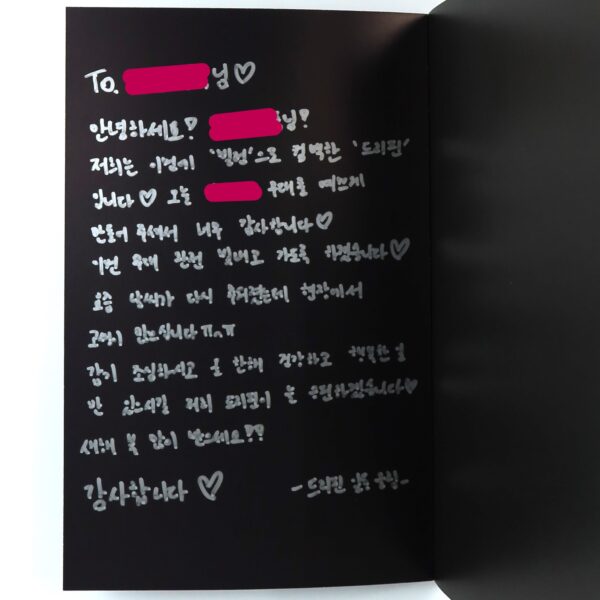 To. 님♡
안녕하세요! 님!
저희는 이번에 '빌런'으로 컴백한 '드리핀'
입니다♡ 오늘 무대를 예쁘게
만들어 주셔서 너무 감사합니다♡
이번 무대 완전 빌런으로 하겠습니다♡
요즘 날씨가 다시 추워졌는데 현장에서
고생이 많으십니다ㅠㅠ
감기 조심하시고 올 한해 건강하고 행복한 일
만 있으시길 저희 드리핀이 응원하겠습니다♡
새해 복 많이 받으세요!!
감사합니다 ♡ -드리핀 일동 올림-